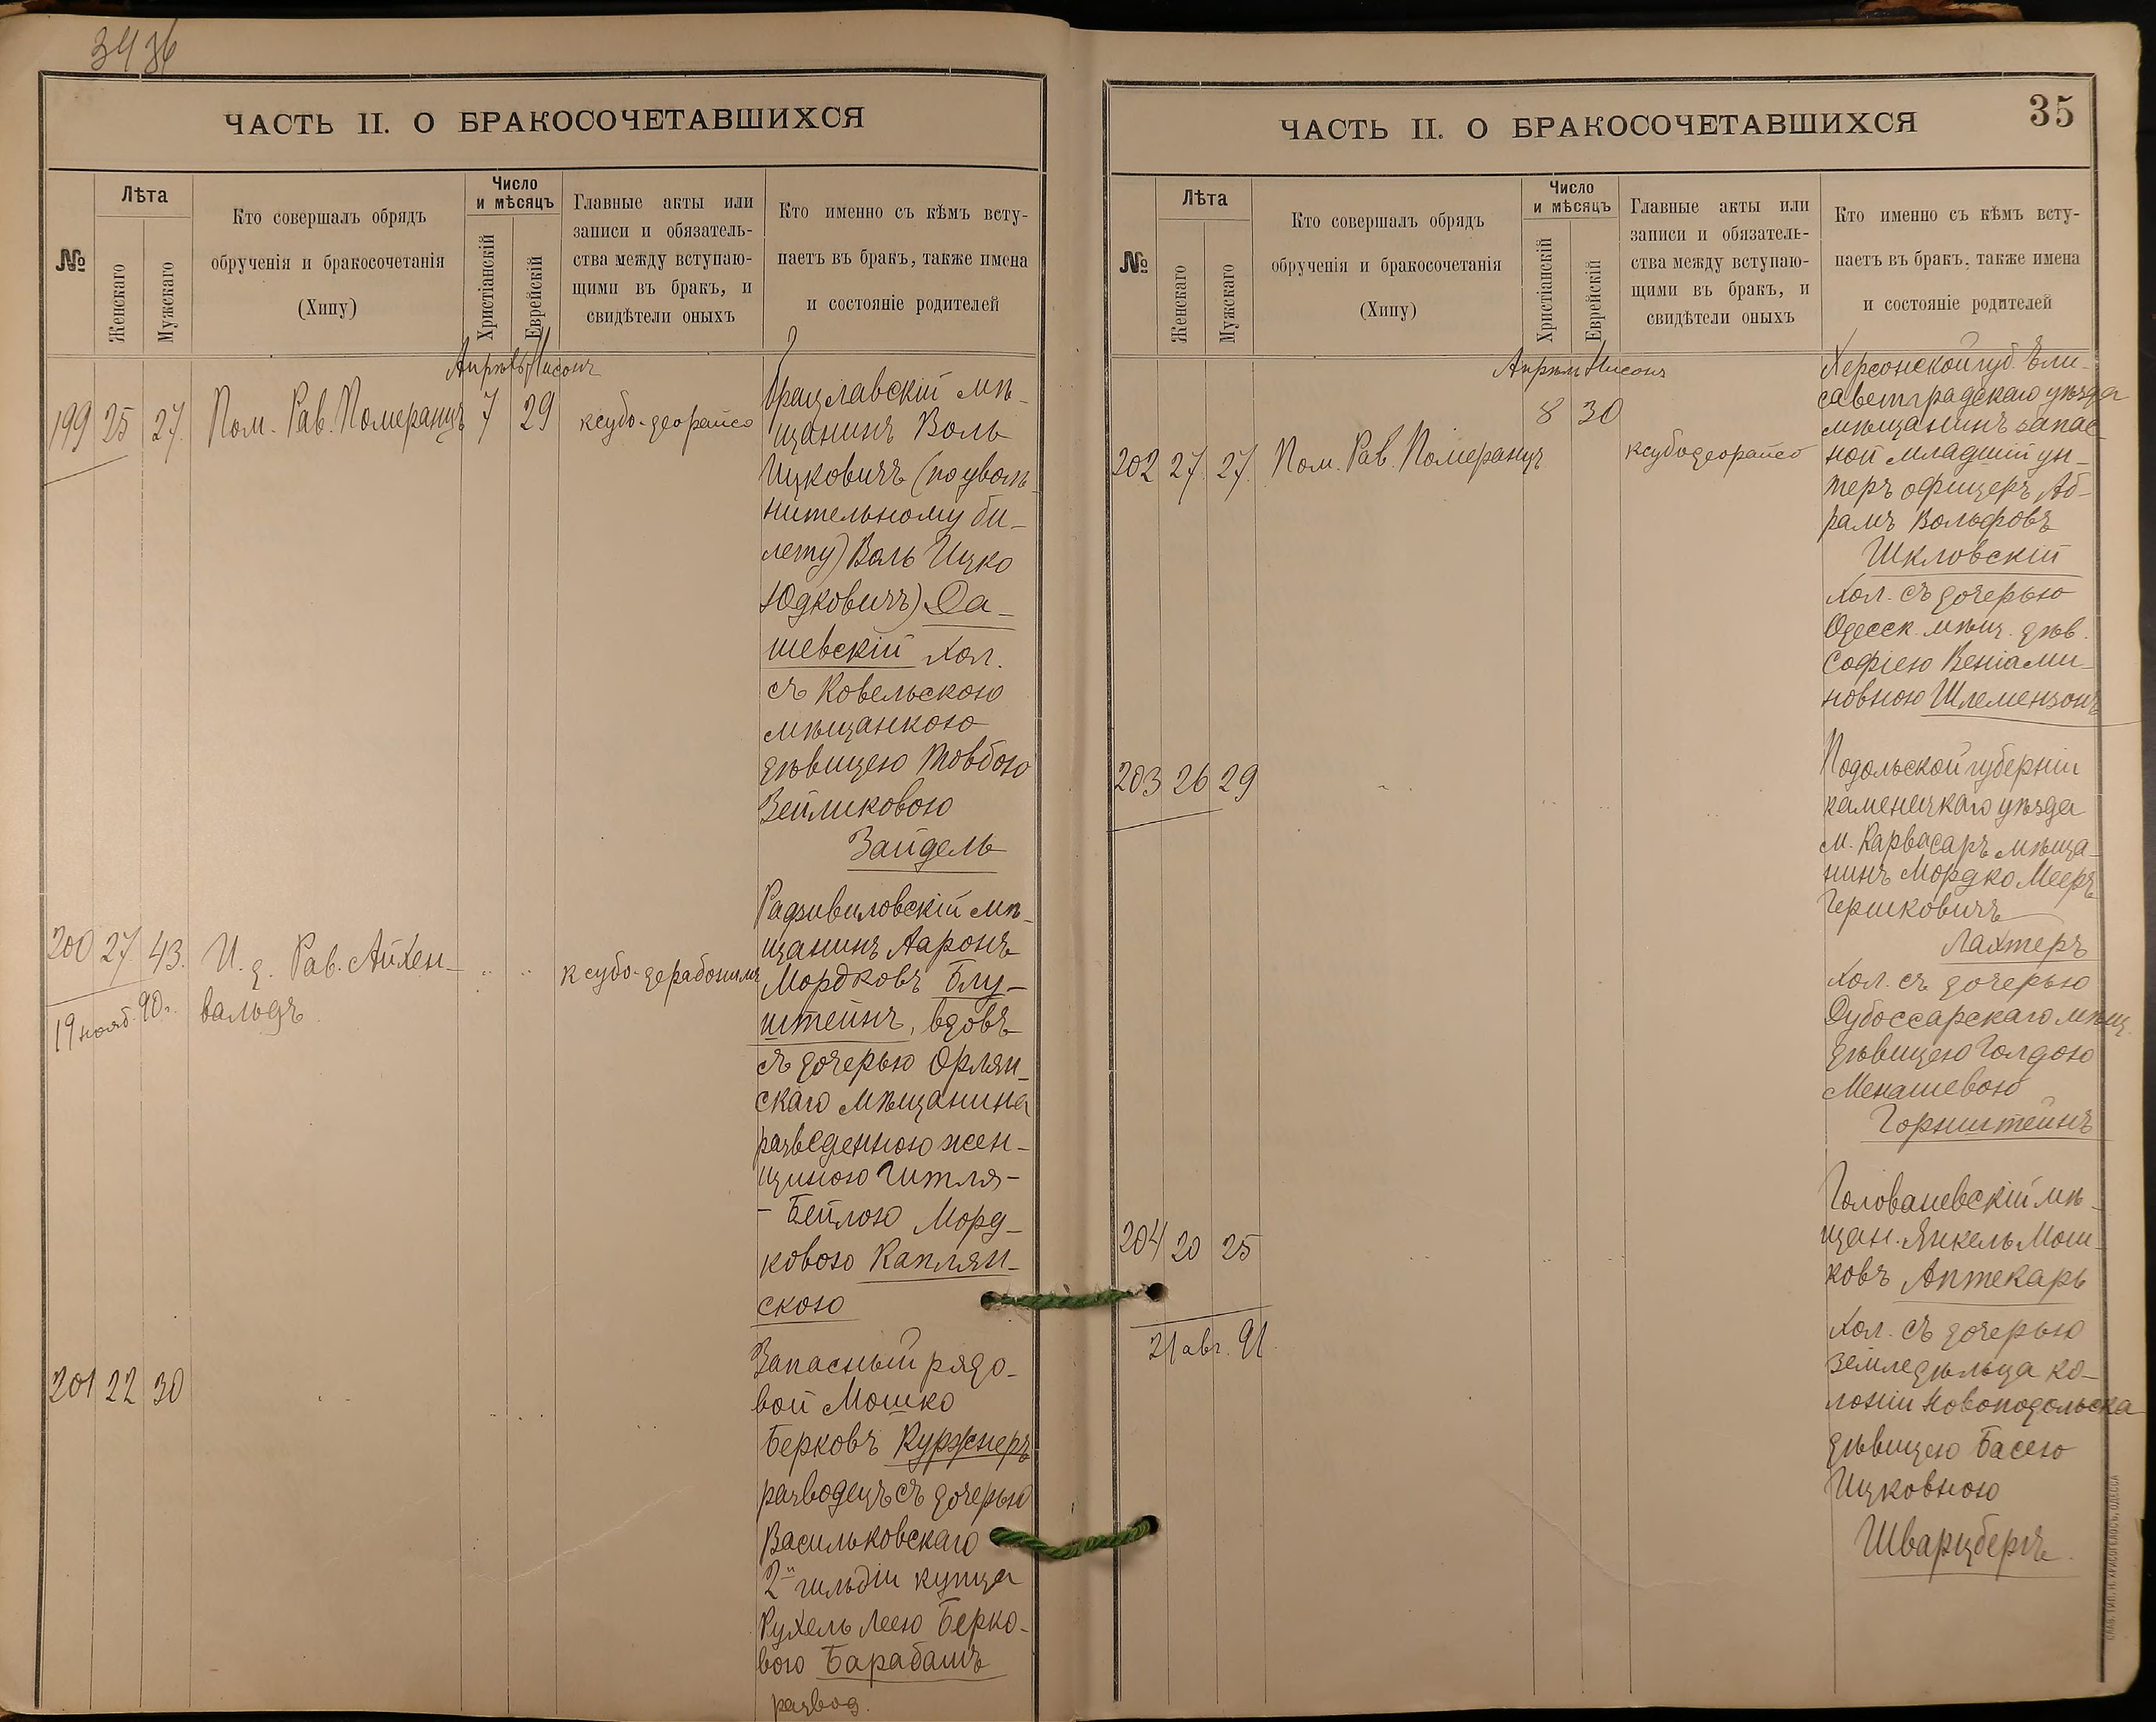 34 36
ЧАСТЬ II. О БРАКОСОЧЕТАВШИХСЯ
№
Лѣта
Женскаго
Мужскаго
Кто совершалъ обрядъ
обрученія и бракосочетанія
(Хипу)
Число
и мѣсяцъ
Христіанскій
Еврейскій
Главные акты или
записи и обязатель-
ства между вступаю-
щими въ бракъ, и
свидѣтели оныхъ
Кто именно съ кѣмъ всту-
паетъ въ бракъ, также имена
и состояніе родителей
Апрѣль Нисонъ
199 25 27. Пом. Рав. Померанцъ 7 29 ксубо-деорайсо
Брацлавскій мѣ-
щанинъ Воль
Ицковичъ (по уволь-
нительному би-
лету) Воль Ицко
Юдковичъ) Да-
шевскій хол.
съ Ковельскою
мѣщанкою
дѣвицею Товбою
Зейликовою
Зайдель
200 27 43. И. д. Рав. Айхен-
вальдъ
ксубо-дерабонимъ
19 нояб. 90 г.
Радзивиловскій мѣ-
щанинъ Ааронъ
Мордковъ Блу-
штейнъ, вдовъ
съ дочерью Орлян-
скаго мѣщанина
разведенною жен-
щиною Гитля-
- Бейлою Морд-
ковою Каплян-
скою
201 22 30
Запасный рядо-
вой Мошко
Берковъ Куржнеръ
разводецъ съ дочерью
Васильковскаго
2й гильдіи купца
Рухель Леею Берко-
вою Барабашъ
развод.
ЧАСТЬ II. О БРАКОСОЧЕТАВШИХСЯ
35
№
Лѣта
Женскаго
Мужскаго
Кто совершалъ обрядъ
обрученія и бракосочетанія
(Хипу)
Число
и мѣсяцъ
Христіанскій
Еврейскій
Главные акты или
записи и обязатель-
ства между вступаю-
щими въ бракъ, и
свидѣтели оныхъ
Кто именно съ кѣмъ всту-
паетъ въ бракъ, также имена
и состояніе родителей
Апрѣль Нисонъ
8 30
202 27 27. Пом. Рав. Померанцъ ксубодеорайсо
Херсонской губ. Ели-
саветградскаго уѣзда
мѣщанинъ запас-
ной младшій ун-
теръ офицеръ Аб-
рамъ Вольфовъ
Шкловскій
хол. съ дочерью
Одесск. мѣщ. дѣв.
Софіею Веніами-
новною Шлемензонъ
203 26 29
Подольской губерніи
каменецкаго уѣзда
м. Карвасаръ мѣща-
нинъ Мордко Мееръ
Гершковичъ
Лахтеръ
хол. съ дочерью
Дубоссарскаго мѣщ.
дѣвицею Голдою
Менашевою
Горнштейнъ
204 20 25
21 авг. 91.
Голованевскій мѣ-
щан. Янкель Мош-
ковъ Аптекарь
хол. съ дочерью
земледѣльца ко-
лоніи Новоподольска
дѣвицею Басею
Ицковною
Шварцбергъ.
СЛАВ. ТИП. Н. ХРИСОГЕЛОСЪ, ОДЕССА